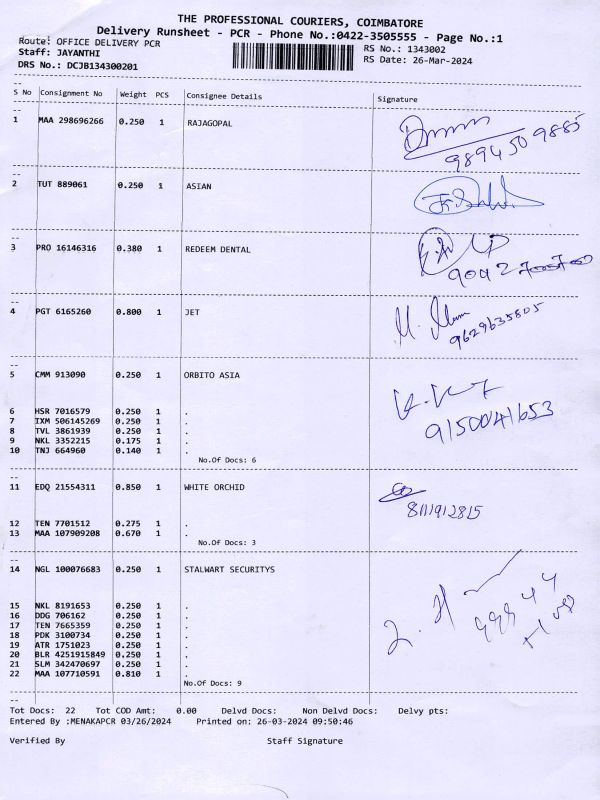 THE PROFESSIONAL COURIERS, COIMBATORE
Delivery Runsheet - PCR - Phone No.:0422-3505555 - Page No.:1
Route: OFFICE DELIVERY PCR
Staff: JAYANTHI
DRS No.: DCJB134300201
RS No.: 1343002
RS Date: 26-Mar-2024
S No Consignment No Weight PCS Consignee Details Signature
1 MAA 298696266 0.250 1 RAJAGOPAL
9894509885
2 TUT 889061 0.250 1 ASIAN
3 PRO 16146316 0.380 1 REDEEM DENTAL
9042
4 PGT 6165260 0.800 1 JET
9629635805
5 CMM 913090 0.250 1 ORBITO ASIA
9150041653
6 HSR 7016579 0.250 1 .
7 IXM 506145269 0.250 1 .
8 TVL 3861939 0.250 1 .
9 NKL 3352215 0.175 1 .
10 TNJ 664960 0.140 1 .
No.Of Docs: 6
11 EDQ 21554311 0.850 1 WHITE ORCHID
8111912815
12 TEN 7701512 0.275 1 .
13 MAA 107909208 0.670 1 .
No.Of Docs: 3
14 NGL 100076683 0.250 1 STALWART SECURITYS
15 NKL 8191653 0.250 1 .
16 DDG 706162 0.250 1 .
17 TEN 7665359 0.250 1 .
18 PDK 3100734 0.250 1 .
19 ATR 1751023 0.250 1 .
20 BLR 4251915849 0.250 1 .
21 SLM 342470697 0.250 1 .
22 MAA 107710591 0.810 1 .
No.Of Docs: 9
Tot Docs: 22 Tot COD Amt: 0.00 Delvd Docs: Non Delvd Docs: Delvy pts:
Entered By :MENAKAPCR 03/26/2024 Printed on: 26-03-2024 09:50:46
Verified By Staff Signature